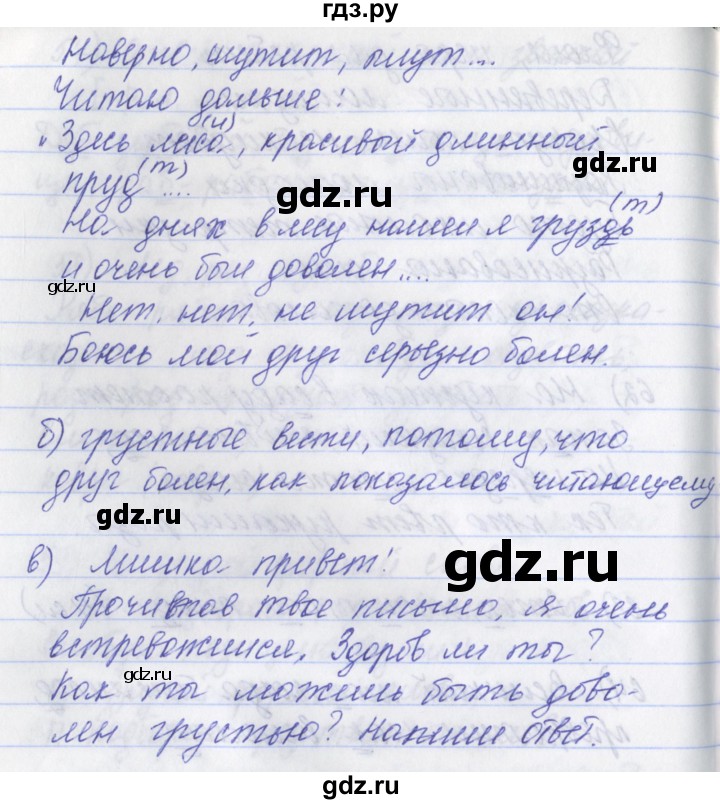 гдз.ру
Наверно, шутит, плут...
Читаю дальше:
„Здесь леса(и), красивый длинный
пруд(т)....
gdz.ru
На днях в лесу нашел я груздь(т)
и очень был доволен....
gdz.ru
Нет, нет, не шутит он!
Боюсь мой друг серьезно болен.
б) грустные вести, потому, что
друг болен, как показалось читающему
gdz.ru
в) Мишка привет!
gdz.ru
Прочитав твое письмо, я очень
встревожился. Здоров ли ты?
gdz.ru
Как ты можешь быть дово-
лен грустью? Напиши ответ.
gdz.ru
gdz.ru